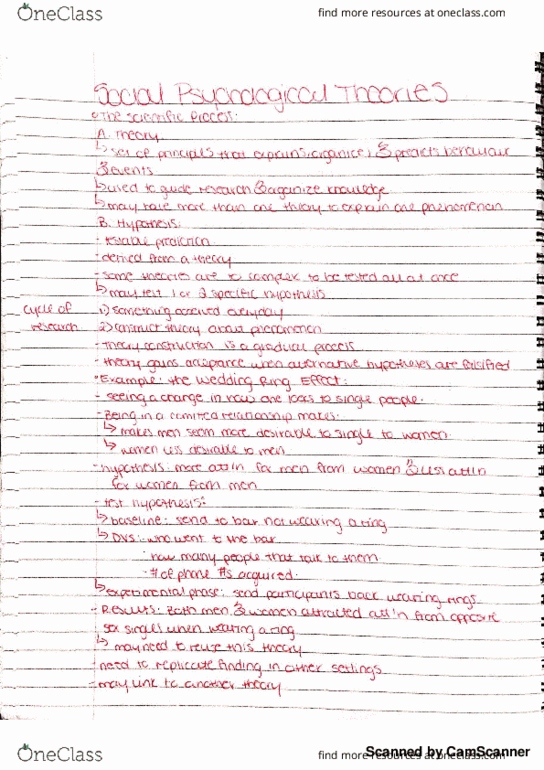 OneClass
find more resources at oneclass.com
Social Psychological Theories
The Scientific Process:
A. Theory
↳ set of principles that explains, organizes, & predicts behaviour
& events
↳ used to guide research & organize knowledge
↳ may have more than one theory to explain one phenomenon
B. Hypothesis:
- testable prediction
- derived from a theory
- some theories are to complex to be tested all at once
↳ may test 1 or 2 specific hypothesis
cycle of research
1) something occurred everyday
2) construct theory about phenomenon
- theory construction is a gradual process
- theory gains acceptance when alternative hypotheses are falsified
*Example: the Wedding Ring Effect:
- seeing a change in how one looks to single people.
- Being in a committed relationship makes:
↳ makes men seem more desirable to single to women
↳ women less desirable to men
- hypothesis: more att'n for men from women & less att'n
for women from men
- test hypothesis:
↳ baseline: send to bar not wearing a ring
↳ DVs: who went to the bar
· how many people that talk to them
· # of phone #s acquired.
↳ experimental phase: send participants back wearing rings
- Results: Both men & women attracted att'n from opposite
sex singles when wearing a ring
↳ may need to reuse this theory
- need to replicate finding in other settings
- may link to another theory
OneClass
find more resources at oneclass.com
Scanned by CamScanner